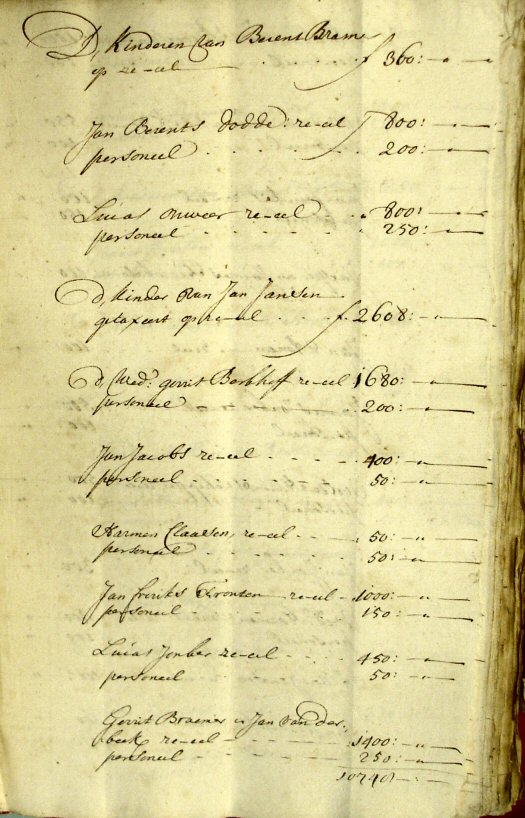 D, Kinderen van Berent Bram
op re-eel . . . f 360: - " -
Jan Berents Dodde: re-eel f 800: - " -
personeel . . . . 200: - " -
Lucas onweer re-eel . " 800: - " -
personeel . . . . 250: - " -
d, Kinder van Jan Jansen
getaxeert op re-eel . . . f 2608: - " -
d, Wed: gerrit Berkhoff re-eel 1680: - " -
personeel . . . . 200: - " -
Jan Jacobs re-eel . . . . 400: - " -
personeel . . . . 50: - " -
Harmen Claasen, re-eel . . . 50: - " -
personeel . . . . 50: - " -
Jan re-eel . 1000: - " -
personeel . . . . 150: - " -
Lucas Jonker re-eel . . . 450: - " -
personeel . . . . 50: - " -
Gerrit Braemer Jan van der
beek re-eel . . . 1400: - " -
personeel . . . . 250: - " -
10748: - : -